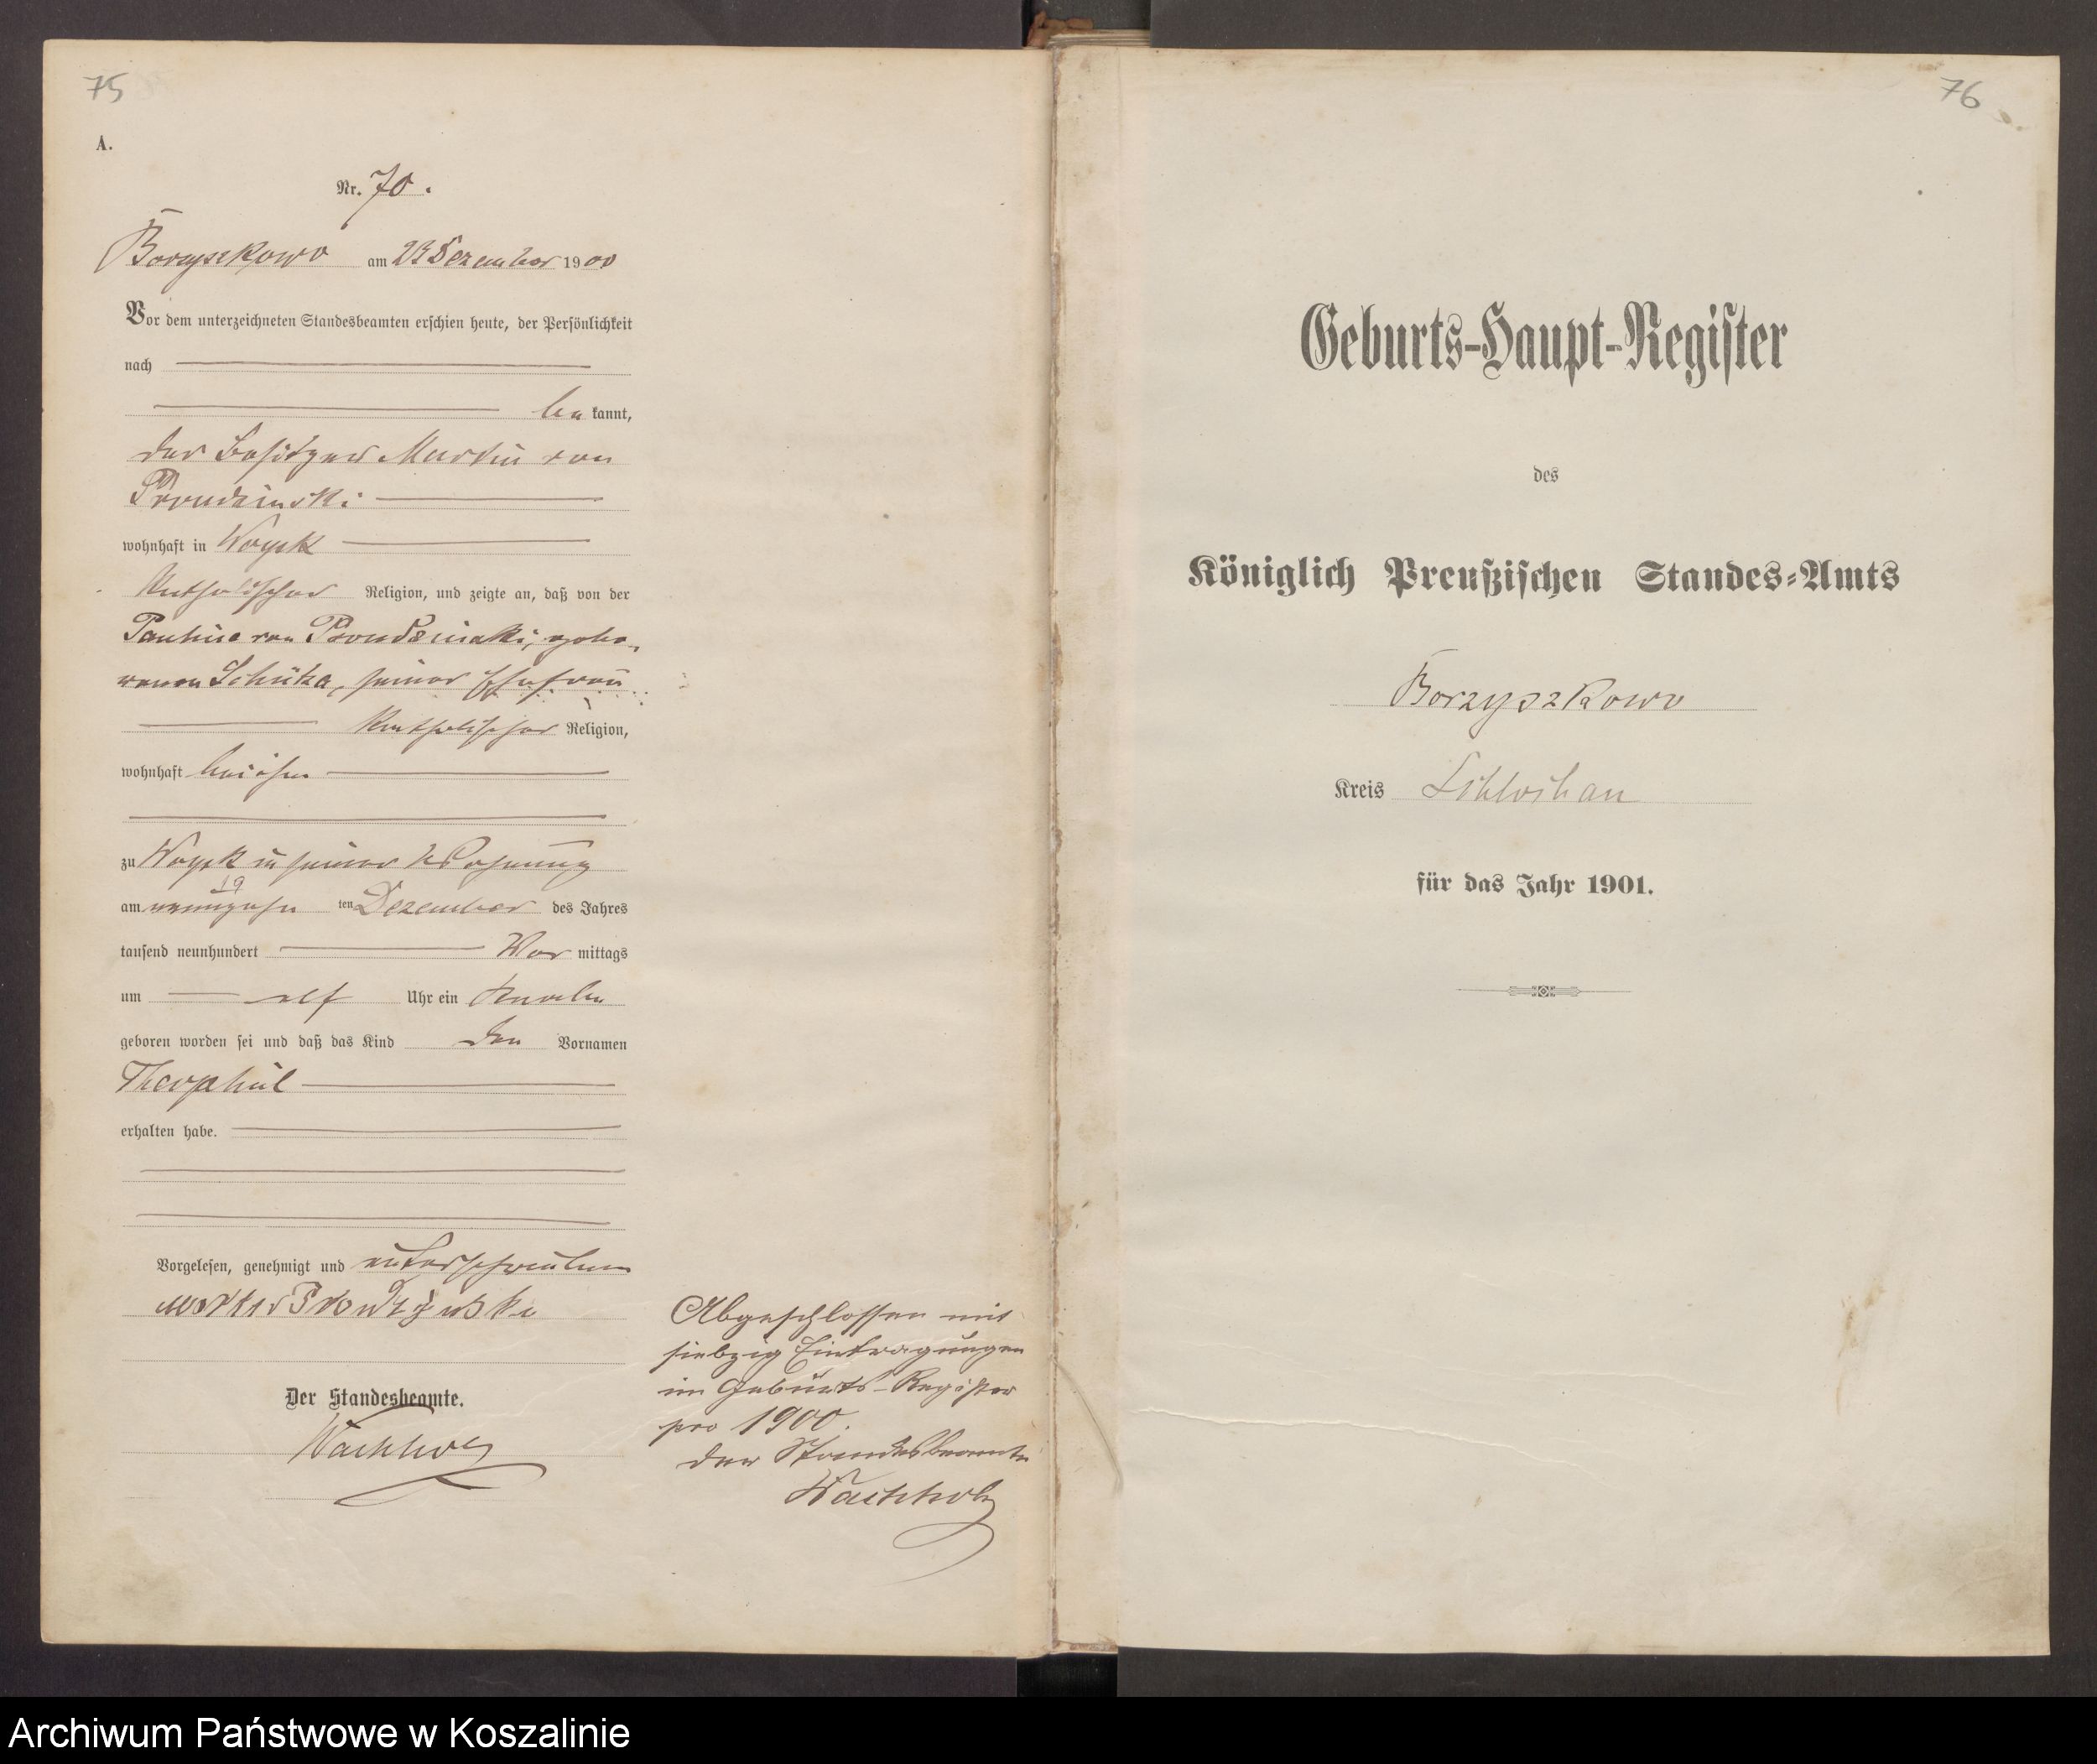 75
A.
Nr. 70.
Borzyszkowo am 23 Dezember 1900
Vor dem unterzeichneten Standesbeamten erschien heute, der Persönlichkeit
nach
be kannt,
der Besitzer Martin von
Prondzinski
wohnhaft in Woysk
katholischer Religion, und zeigte an, daß von der
Pauline von Prondzinski, gebo-
renen Schütza, seiner Ehefrau
katholischer Religion,
wohnhaft bei ihm
zu Woysk in seiner Wohnung
19
am neunzehn ten Dezember des Jahres
tausend neunhundert Vor mittags
um elf Uhr ein Knabe
geboren worden sei und daß das Kind den Vornamen
Theophiel
erhalten habe.
Vorgelesen, genehmigt und unterschrieben
Der Standesbeamte.
Wachholz
Abgeschlossen mit
siebzig Eintragungen
im Geburts-Register
pro 1900.
Der Standesbeamte
Wachholz
76
Geburts-Haupt-Register
des
Königlich Preußischen Standes-Amts
Borzyszkowo
Kreis Schlochau
für das Jahr 1901.
Archiwum Państwowe w Koszalinie